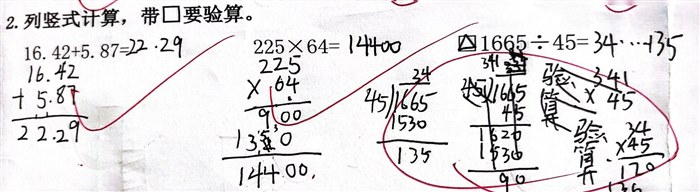 2.列竖式计算，带□要验算。
16.42+5.87=22.29
225×64=14400
△1665÷45=34……135
16.42
+ 5.87
22.29
225
× 64
900
1350
144.00.
34
45 1665
1530
135
341
45 1665
45
1620
1530
90
验算
341
× 45
验算
34
×45
170
135